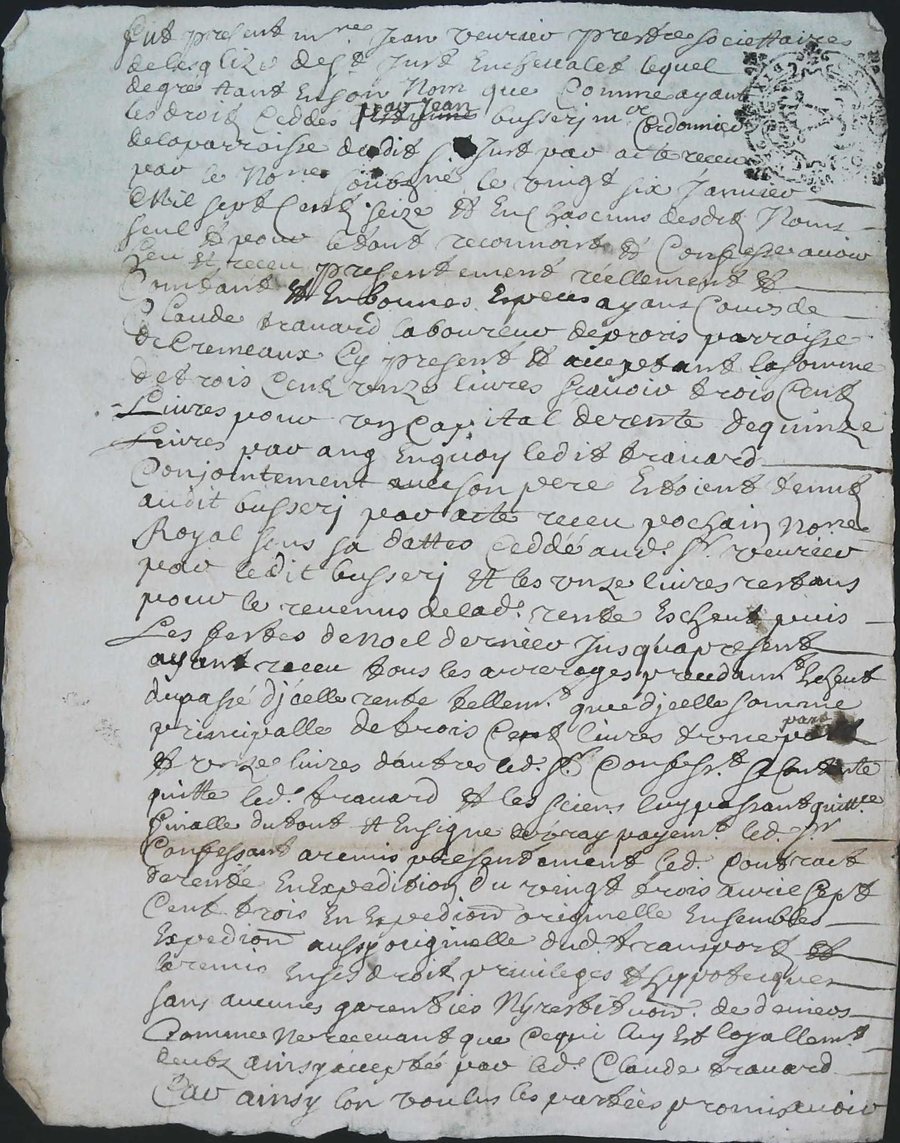 fut present mre Jean veurier prestre societtaires
de leglize de st Just en chevalet lequel
degre tant en son Nom que Comme ayant
les droitz Ceddes par Jean bussery mre Cordonnier
de la parroisse dudit st Just par acte receu
par le Nore soubzné le vingt six Janvier
Mil sept Centz seize Et En Chascuns desditz Noms
seul & pour le tout reconnoist & Confesse avoir
heu et receu presentement reellement &
Comptant Et En bonnes Especes ayant Cours de
Claude travard laboureur de paroisse
de Cremeaux Cy present & acceptant la somme
de trois Centz unze livres scavoir trois Centz
Livres pour un Capital de rente de quinze
Livres par ang Enquoy ledit travard
Conjointement avec son pere Estoient tenuz
audit bussery par acte receu pochain Nore
Royal sous sa datte Ceddé aud. sr. veurier
par ledit bussery Et les unze livres restans
pour le revenus de lad. rente Escheut puis
Les festes de noel dernier Jusqua present
ayant receu tous les arrerages precedamt Escheut
du passé djcelle rente tellemt. que djcelle somme
principalle de trois Centz livres dune part
Et unze livres dautres led. sr. Confest. se Contente
quitte led. travard Et les siens luy passant quittce
finalle du tout Et Ensigne de vray payemt. led. sr
Confessant a remis presentement led. Contract
de rente En Expedition du vingt trois avril sept
Cent trois En Expedion originelle Ensembles
Expedion aussy originelle dud. transport Et
le remis En ses droit privileges & hypoteques
sans aucunes garenties Ny restituon. de deniers
Comme Ne recevant que Cequi luy Est loyallemt.
deubz ainsy accepté par led. Claude travard
Car ainsy lon voulus les parties promis avoir